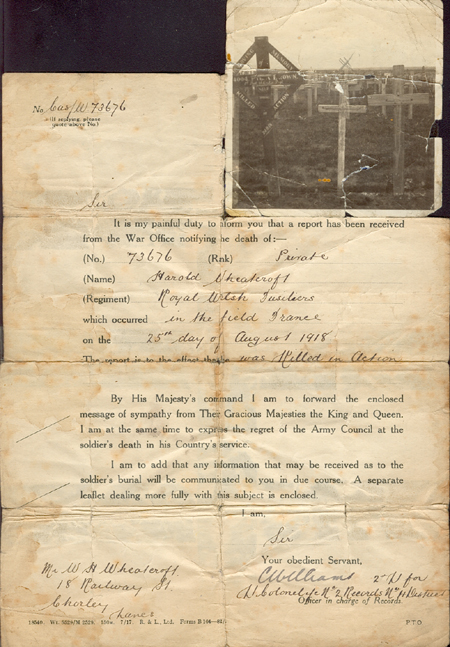 No. Cas/W 73676
(If replying, please
quote above No.)
Sir
It is my painful duty to inform you that a report has been received
from the War Office notifying the death of:—
(No.) 73676 (Rank) Private
(Name) Harold Wheatcroft
(Regiment) Royal Welsh Fusiliers
which occurred in the field France
on the 25th day of August 1918
The report is to the effect that he was Killed in Action
By His Majesty's command I am to forward the enclosed
message of sympathy from Their Gracious Majesties the King and Queen.
I am at the same time to express the regret of the Army Council at the
soldier's death in his Country's service.
I am to add that any information that may be received as to the
soldier's burial will be communicated to you in due course. A separate
leaflet dealing more fully with this subject is enclosed.
I am,
Sir
Your obedient Servant,
Mr W H Wheatcroft
18 Railway St
Chorley
Lancs
CWilliams 2/Lt for
Lt Colonel i/c No 2 Records
Officer in charge of Records.
P T O